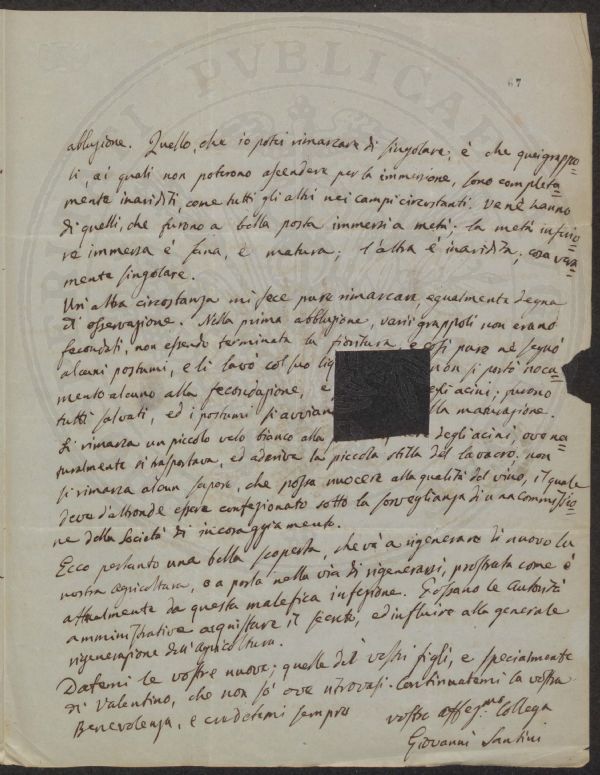 67
abluzione. Quello, che io potei rimarcare di singolare; è che quei grappo=
li, ai quali non poterono ascendere per la immersione, sono completa=
mente inariditi, come tutti gli altri nei campi circostanti. Ve nè hanno
di quelli, che furono a bella posta immersi a metà: la metà inferio=
re immersa è sana, e matura; l'altra è inaridita; cosa vera=
mente singolare.
Un'altra circostanza mi fece pure rimarcare egualmente degna
di osservazione. Nella prima abluzione, varii grappoli non erano
fecondati, non essendo terminata la fioritura, e così pure nè segnò
alcuni postumi, e li lavò col suo non si portò nocu=
mento alcuno alla fecondazione, e egli acini; furono
tutti salvati, ed i postumi si avvian lla maturazione.
Si rimarca un piccolo velo bianco alla degli acini, ove na=
turalmente si trasportava, ed aderiva la piccola stilla del lavacro. non
si rimarca alcun sapore, che possa nuocere alla qualità del vino, il quale
deve d'altronde essere confezionato sotto la sorveglianza di una commissio=
ne della Società di incoraggiamento.
Ecco pertanto una bella scoperta, che và a rigenerare di nuovo la
nostra agricoltura, o a porla nella via di rigenerarsi, prostrata come è
attualmente da questa malefica infezione. Possano le Autorità
amministrative acquistare il secreto, ed influire alla generale
rigenerazione dell'Agricoltura.
Datemi le vostre nuove; quelle dei vostri figli, e specialmente
di Valentino, che non sò ove ritrovasi. Continuatemi la vostra
Benevolenza, e credetemi sempre
vostro affez.mo Collega
Giovanni Santini